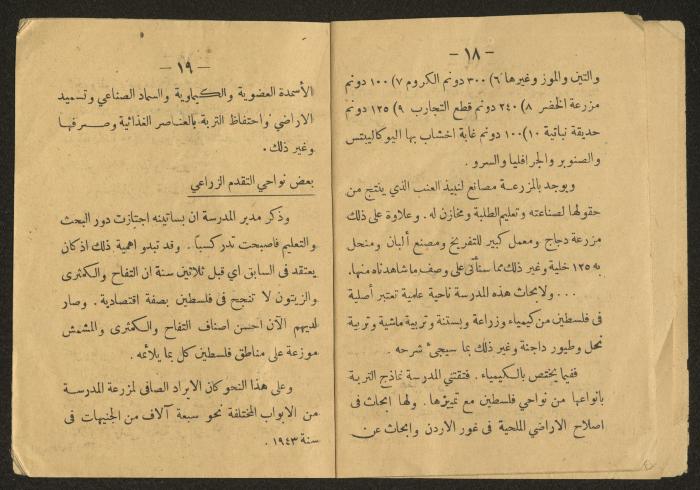 — ١٨ —
والتين والموز وغيرها ٦) ٣٠٠ دونم الكروم ٧) ١٠٠ دونم
مزرعة الخضر ٨) ٢٤٠ دونم قطع التجارب ٩) ١٢٥ دونم
حديقة نباتية ١٠) ١٠٠ دونم غابة اخشاب بها اليوكاليبتس
والصنوبر والجرافليا والسرو .
ويوجد بالمزرعة مصانع لنبيذ العنب الذي ينتج من
حقولها لصناعته وتعليم الطلبة ومخازن له . وعلاوة على ذلك
مزرعة دجاج ومعمل كبير للتفريخ ومصنع ألبان ومنحل
به ١٢٥ خلية وغير ذلك مما سنأتى على وصف ما شاهدناه منها.
... ولابحاث هذه المدرسة ناحية علمية تعتبر أصلية
فى فلسطين من كيمياء وزراعة وبستنة وتربية ماشية وتربية
نحل وطيور داجنة وغير ذلك بما سيجىء شرحه .
ففيما يختص بالكيمياء . فتقتني المدرسة نماذج التربة
بانواعها من نواحي فلسطين مع تمييزها . ولها ابحاث فى
اصلاح الاراضي الملحية فى غور الاردن وابحاث عن
— ١٩ —
الأسمدة العضوية والكيماوية والسماد الصناعي وتسميد
الاراضي واحتفاظ التربة بالعناصر الغذائية وصرفها
وغير ذلك .
بعض نواحي التقدم الزراعي
وذكر مدير المدرسة ان بساتينه اجتازت دور البحث
والتعليم فاصبحت تدر كسباً . وقد تبدو اهمية ذلك اذ كان
يعتقد فى السابق اي قبل ثلاثين سنة ان التفاح والكمثرى
والزيتون لا تنجح فى فلسطين بصفة اقتصادية . وصار
لديهم الآن احسن اصناف التفاح والكمثرى والمشمش
موزعة على مناطق فلسطين كل بما يلائمه .
وعلى هذا النحو كان الايراد الصافى لمزرعة المدرسة
من الابواب المختلفة نحو سبعة آلاف من الجنيهات فى
سنة ١٩٤٣ .